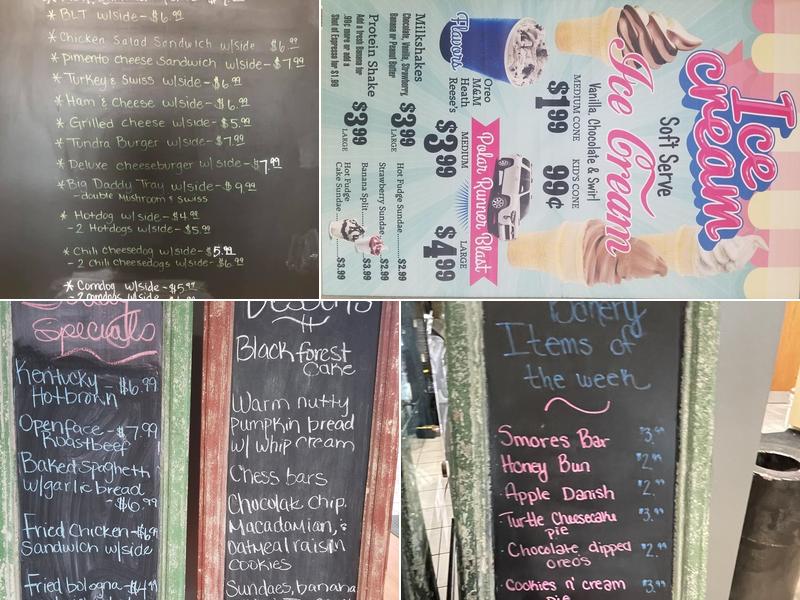 * BLT w/side - $6.99
* Chicken Salad Sandwich w/side $6.99
* pimento cheese Sandwich w/side - $7.99
* Turkey & Swiss w/side - $6.99
* Ham & Cheese w/side - $6.99
* Grilled cheese w/side - $5.99
* Tundra Burger w/side - $7.99
* Deluxe cheeseburger w/side - $7.99
* Big Daddy Tray w/side - $9.99
- double Mushroom & Swiss
* Hotdog w/side - $4.99
- 2 Hotdogs w/side - $5.99
* Chili cheesedog w/side - $5.99
- 2 Chili cheesedogs w/side - $6.99
* Corndog w/side - $5.99
- 2 corndogs w/side
Ice
cream
Soft Serve
Ice Cream
Vanilla, Chocolate & Swirl
MEDIUM CONE
$1.99
KID'S CONE
99¢
Polar Runner Blast
Flavors
Oreo
M&M
Heath
Reese's
MEDIUM
$3.99
LARGE
$4.99
Milkshakes
Chocolate, Vanilla, Strawberry,
Banana or Peanut Butter
$3.99
LARGE
Protein Shake
Add a fresh Banana for
.99¢ more or add a
Shot of Espresso for $1.99
$3.99
LARGE
Hot Fudge Sundae.......$2.99
Strawberry Sundae..$2.99
Banana Split.......$3.99
Hot Fudge
Cake Sundae.......$3.99
Specials
Kentucky - $6.99
Hotbrown
Openface - $7.99
Roastbeef
Baked Spaghetti
w/garlic bread
- $6.99
Fried Chicken - $6.99
Sandwich w/side
Fried bologna - $4.99
Desserts
Black forest
Cake
Warm nutty
pumpkin bread
w/ whip cream
Chess bars
Chocolate chip,
Macadamian, &
Oatmeal raisin
cookies
Sundaes, banana
Bakery
Items of
the week
Smores Bar $3.99
Honey Bun $2.99
Apple Danish $2.99
Turtle Cheesecake $3.99
pie
Chocolate dipped $2.99
oreo's
Cookies n' cream $3.99
pie